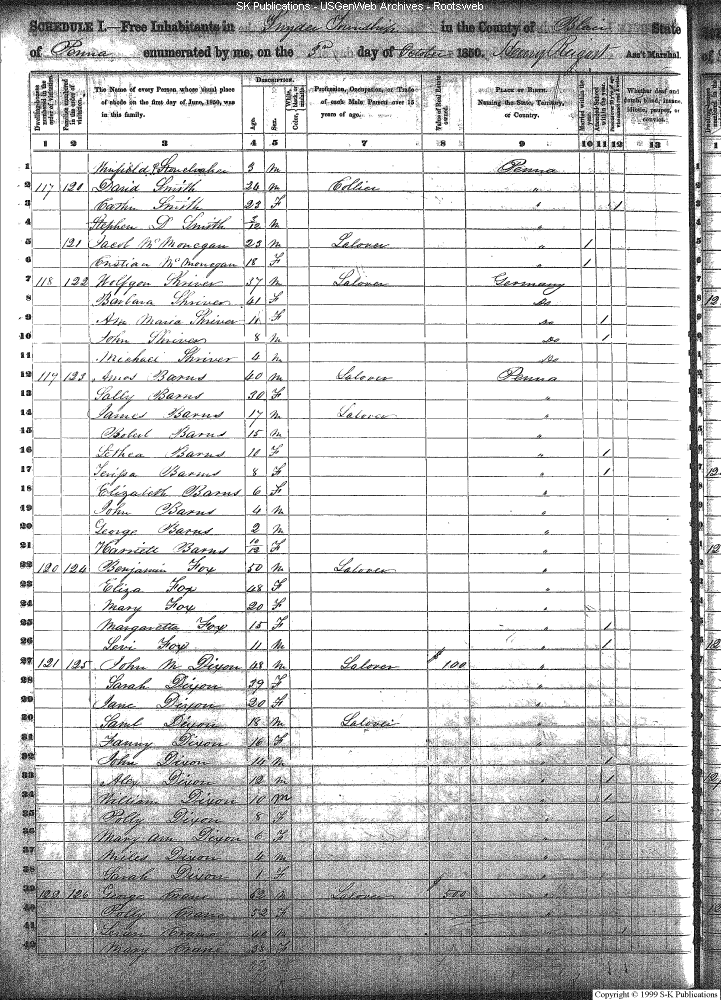 SK Publications - USGenWeb Archives - Rootsweb
SCHEDULE I.—Free Inhabitants in Snyder Township in the County of Blair State
of Penna enumerated by me, on the 3d day of October 1850. Ass't Marshal.
Dwelling-houses numbered in the order of visitation.
Families numbered in the order of visitation.
The Name of every Person whose usual place of abode on the first day of June, 1850, was in this family.
DESCRIPTION.
Age.
Sex.
White, black, or mulatto.
Color,
Profession, Occupation, or Trade of each Male Person over 15 years of age.
Value of Real Estate owned.
PLACE OF BIRTH. Naming the State, Territory, or Country.
Married within the year.
Whether deaf and dumb, blind, insane, idiotic, pauper, or convict.
1 2 3 4 5 6 7 8 9 10 11 12 13
1 3 m Penna
2 117 120 David Smith 24 m Collier "
3 Cathn Smith 23 F 1
4 Stephen D Smith 3/12 m "
5 121 Jacob McMonegan 23 m Labover " 1
6 Cristian McMonegan 18 F " 1
7 118 122 Wolfgon Shriver 37 m Labover Germany
8 Barbara Shriver 41 F Do
9 Ann Maria Shriver 11 F Do 1
10 John Shriver 8 m Do 1
11 Michael Shriver 4 m Do
12 119 123 Amos Barns 40 m Labover Penna
13 Sally Barns 30 F "
14 James Barns 17 m Labover "
15 Robert Barns 15 m "
16 Barns 10 F " 1
17 Barns 8 F " 1
18 Elizabeth Barns 6 F "
19 John Barns 4 m "
20 George Barns 2 m "
21 Harriett Barns 10/12 F "
22 120 124 Benjamin Fox 50 m Labover "
23 Eliza Fox 48 F "
24 Mary Fox 20 F "
25 Margaretta Fox 15 F " 1
26 Levi Fox 11 m " 1
27 121 125 John M Dixon 48 m Labover $ 100 "
28 Sarah Dixon 39 F "
29 Jane Dixon 20 F "
30 Saml Dixon 18 m Labover "
31 Fanny Dixon 16 F "
32 John Dixon 14 m " 1
33 Alex Dixon 12 m " 1
34 William Dixon 10 m " 1
35 Polly Dixon 8 F " 1
36 Mary Ann Dixon 6 F "
37 Miles Dixon 4 m "
38 Sarah Dixon 1 F "
39 126 Crane 62 m Labover $ 500 "
40 Polly Crane 52 F "
41 Crane
42 Mary Crane F
Copyright © 1999 S-K Publications